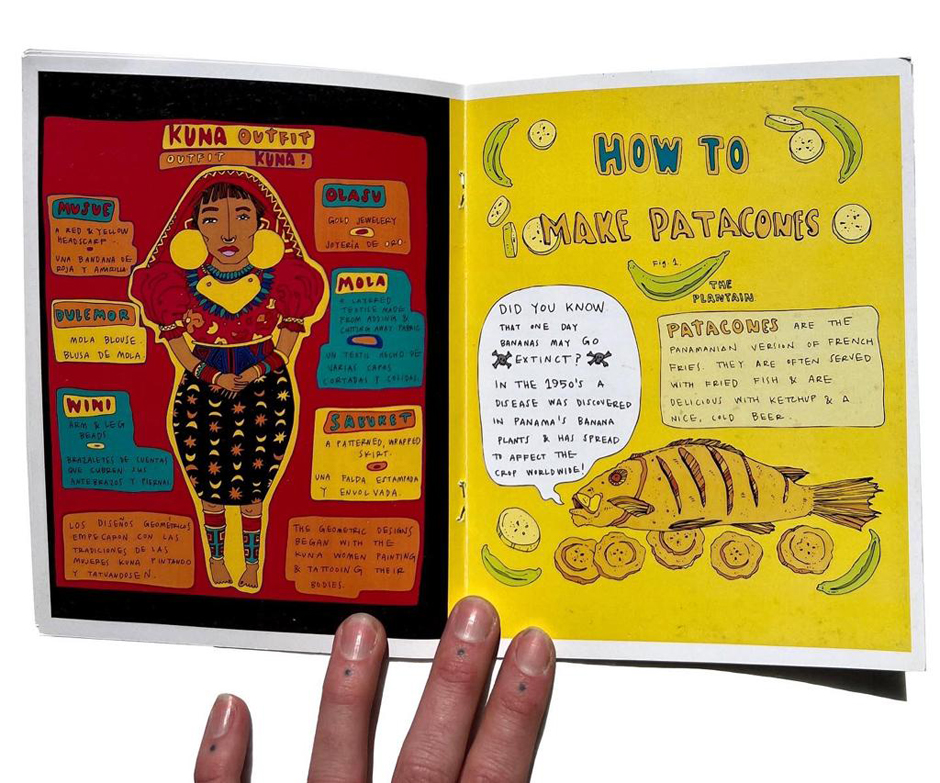 KUNA OUTFIT
OUTFIT KUNA!
MUSUE
A RED & YELLOW
HEADSCARF.
UNA BANDANA DE
ROJA Y AMARILLA
DULEMOR
MOLA BLOUSE.
BLUSA DE MOLA.
WINI
ARM & LEG
BEADS
BRAZALETES DE CUENTAS
QUE CUBREN SUS
ANTEBRAZOS Y PIERNAS.
LOS DISEÑOS GEOMÉTRICOS
EMPEZARON CON LAS
TRADICIONES DE LAS
MUJERES KUNA PINTANDO
Y TATUANDOSEN.
OLASU
GOLD JEWELERY
JOYERÍA DE ORO
MOLA
A LAYERED
TEXTILE MADE
FROM ADDING &
CUTTING AWAY FABRIC
UN TEXTIL HECHO DE
VARIAS CAPAS
CORTADAS Y COSIDAS.
SABURET
A PATTERNED, WRAPPED
SKIRT.
UNA FALDA ESTAMPADA
Y ENVOLVADA.
THE GEOMETRIC DESIGNS
BEGAN WITH THE
KUNA WOMEN PAINTING
& TATTOOING THEIR
BODIES.
HOW TO
MAKE PATACONES
Fig. 1.
THE
PLANTAIN
DID YOU KNOW
THAT ONE DAY
BANANAS MAY GO
EXTINCT?
IN THE 1950's A
DISEASE WAS DISCOVERED
IN PANAMA'S BANANA
PLANTS & HAS SPREAD
TO AFFECT THE
CROP WORLDWIDE!
PATACONES ARE THE
PANAMANIAN VERSION OF FRENCH
FRIES. THEY ARE OFTEN SERVED
WITH FRIED FISH & ARE
DELICIOUS WITH KETCHUP & A
NICE, COLD BEER.